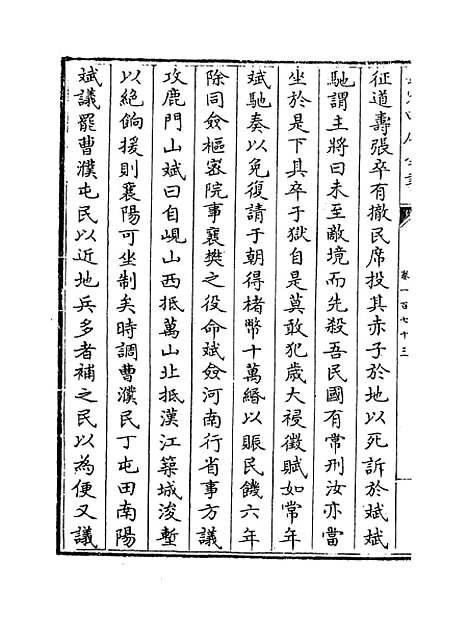 征道壽張卒有撤民席投其赤子於地以死訴於斌斌
馳謂主將曰未至敵境而先殺吾民國有常刑汝亦當
坐於是下其卒于獄自是莫敢犯歲大祲徵賦如常年
斌馳奏以免復請于朝得楮幣十萬緡以賑民饑六年
除同僉樞宻院事襄樊之役命斌僉河南行省事方議
攻鹿門山斌曰自峴山西抵萬山北抵漢江築城浚塹
以絶餉援則襄陽可坐制矣時調曹濮民丁屯田南陽
斌議罷曹濮屯民以近地兵多者補之民以為便又議
卷一百七十三